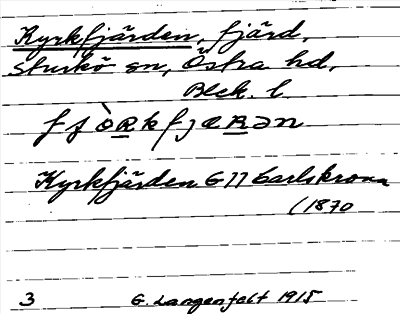 Kyrkfjärden, fjärd,
Sturkö sn, Östra hd,
Blek. l.
Kyrkfjärden G 11 Carlskrona
(1870
3 G. Langenfelt 1915